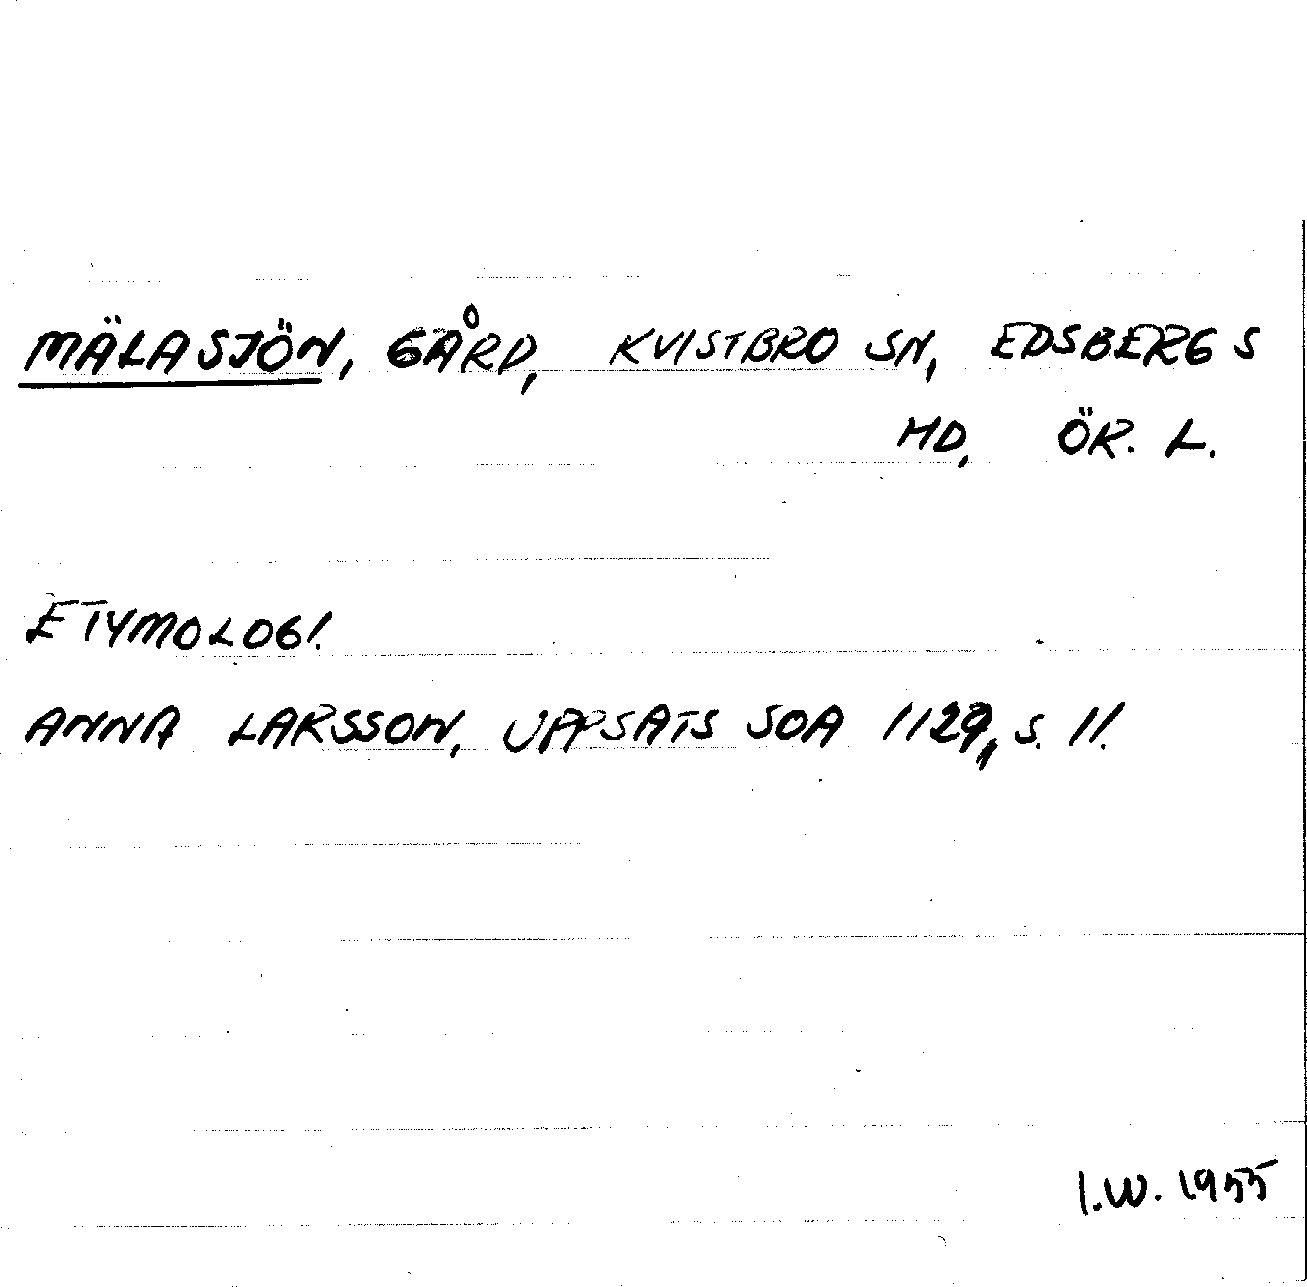 MÄLASJÖN, GÅRD, KVISTBRO SN, EDSBERGS
HD, ÖR. L.
ETYMOLOGI.
ANNA LARSSON, UPPSATS SOA 1129, S. 11.
I.W. 1955